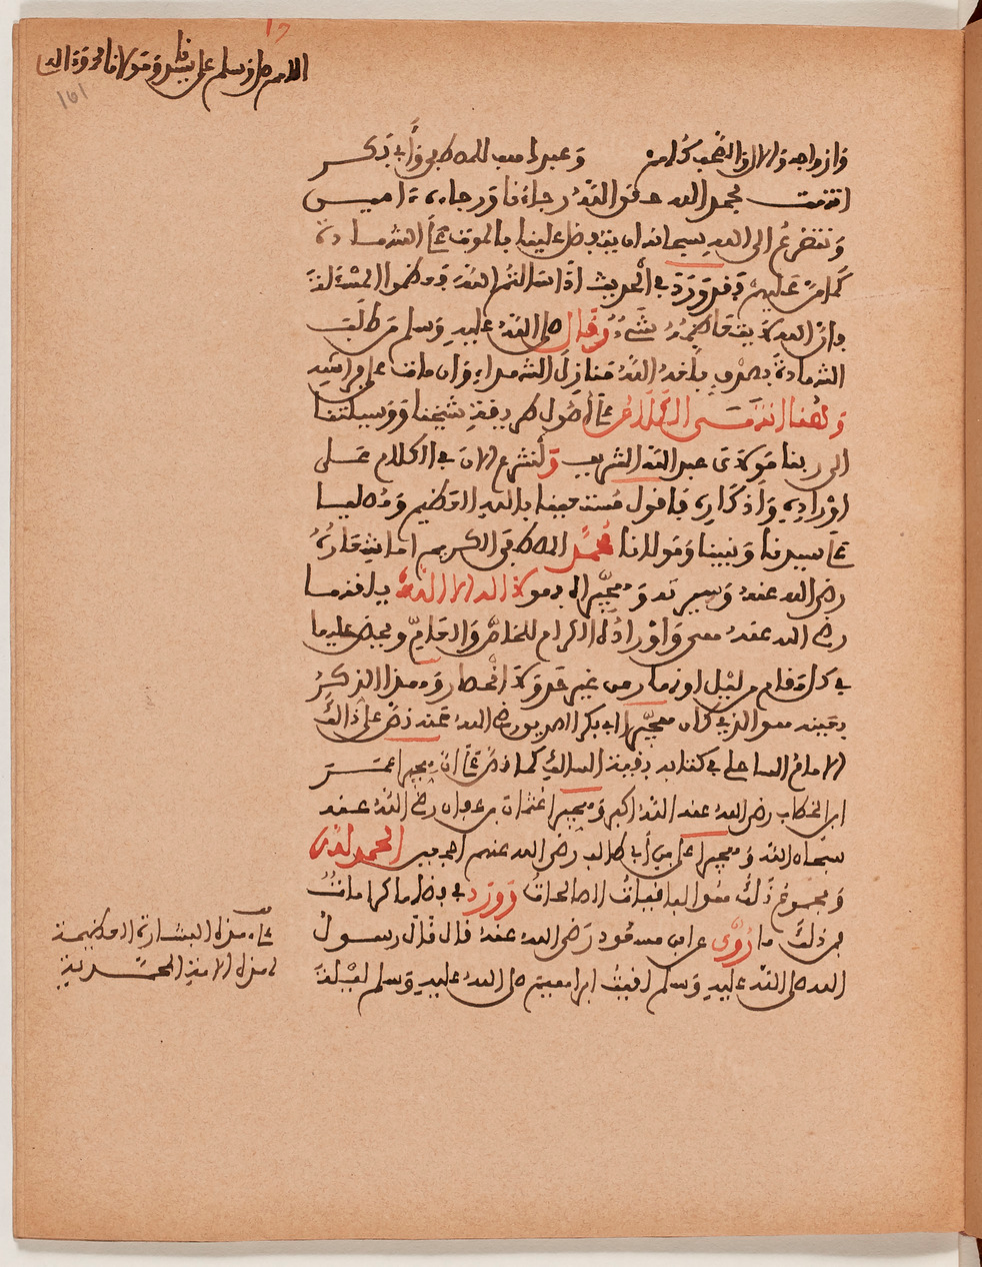 ١٦
اللهم صل وسلم على سيدنا ومولانا محمد وءاله
161
وازواجه والال والصحب كلهم وعبد اهيب للمصطفى وأبى بكر
انتهت بحمد الله حقق الله رجاءنا ورجاءه ءاميس
ونتضرع الى الله سبحانه ان يتفضل علينا بالموت على الشهادة
كما من عليهم فقد ورد في الحديث اذا سالتم الله فعظموا المسئلة
فان الله لا يتعاظمه شيء وقال صلى الله عليه وسلم من طلب
الشهادة بصدق بلغه الله منازل الشهداء وان مات على فراشه
وهنا انتهى الكلام على أصول طريقة شيخنا ووسيلتنا
الى ربنا مولاى عبد الله الشريف ولنشرع الان في الكلام على
اوراده واذكاره فاقول مستعينا بالله العظيم ومصليا
على سيدنا ونبينا ومولانا محمد المصطفى الكريم اما شعاره
رضى الله عنه وسيرته وهجيراه فهو لا اله الا الله يلقنها
رضى الله عنه معنى واوراده الكرام للخاص والعام ويحض عليها
في كل مقام من ليل او نهار من غير عد ولا انحصار وهذا الذكر
بعينه هو الذي كان هجيرا ابى بكر الصديق رضى الله عنه نص على ذالك
الامام الساحلي في كتابه بغية السالك كما نص على ان هجيرا عمر
ابن الخطاب رضى الله عنه الله اكبر وهجيرا عثمان بن عفان رضى الله عنه
سبحان الله وهجيرا على بن أبى طالب رضى الله عنهم اجمعين الحمد لله
ومجموع ذلك هو الباقيات الصالحات وورد في فضلها كرامات
فمن ذلك ما روى عن ابن مسعود رضى الله عنه قال قال رسول
الله صلى الله عليه وسلم لقيت ابراهيم صلى الله عليه وسلم ليلة
قف على هذه البشارة العظيمة
لهذه الامة المحمدية